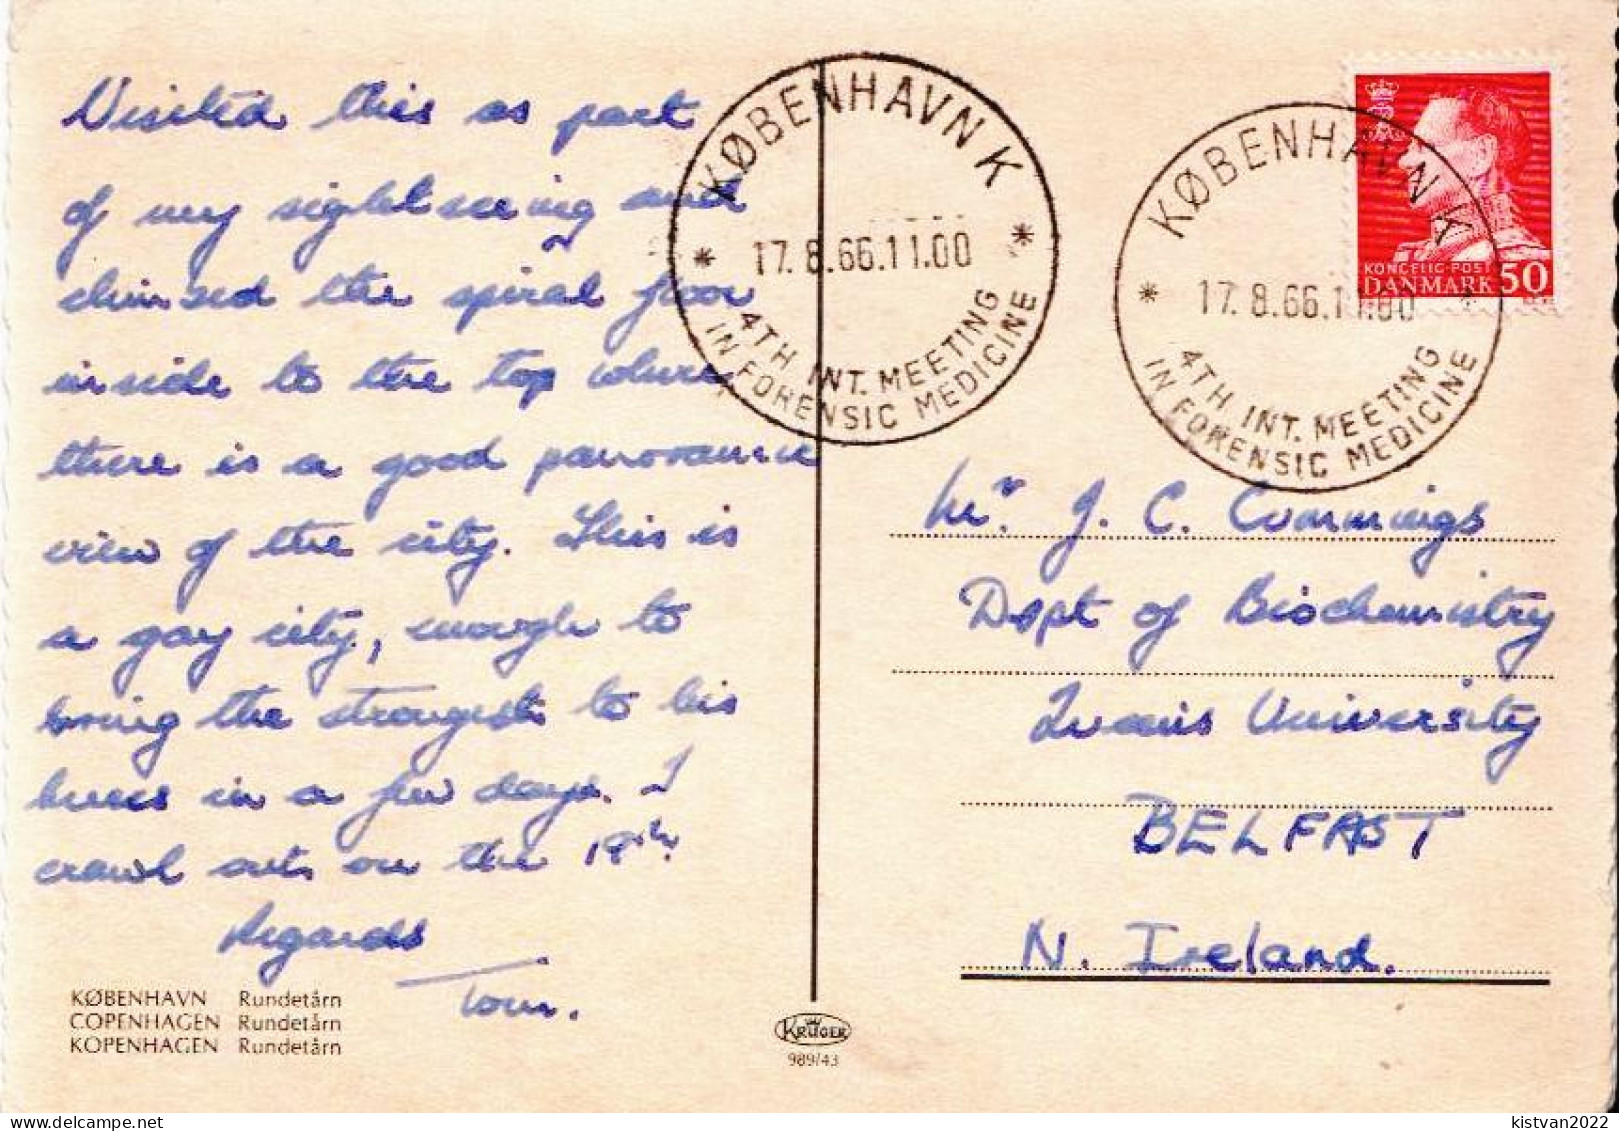 Visited this as part
of my sightseeing and
climbed the spiral floor
inside to the top where
there is a good panoramic
view of the city. This is
a gay city, enough to
bring the strongest to his
knees in a few days. I
crawl out on the 18th.
Regards
Tom.
KØBENHAVN Rundetårn
COPENHAGEN Rundetårn
KOPENHAGEN Rundetårn
KRÜGER
989/43
KØBENHAVN K
17.8.66.11.00
4TH INT. MEETING
IN FORENSIC MEDICINE
KØBENHAVN K
17.8.66.11.00
4TH INT. MEETING
IN FORENSIC MEDICINE
KONGELIG-POST
DANMARK 50
Mr. J. C. Cummings
Dept of Biochemistry
Queens University
BELFAST
N. Ireland.
kistvan2022